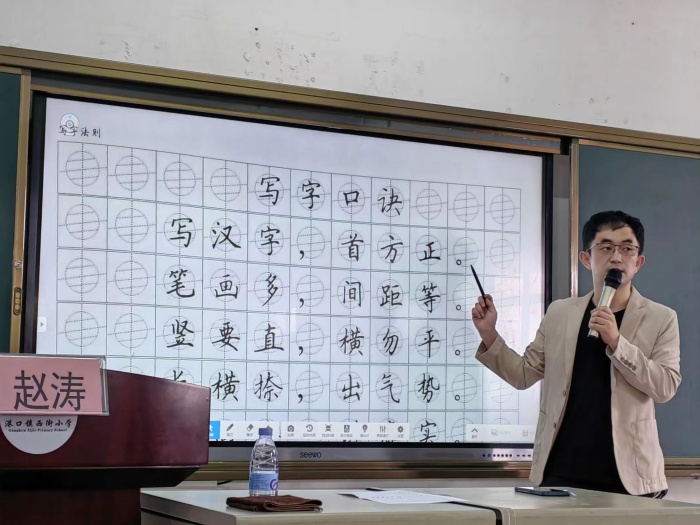 写字法则
写字口诀
写汉字，首方正。
笔画多，间距等。
竖要直，横勿平。
长横捺，出气势。
实
seewo
赵涛
港口镇西街小学